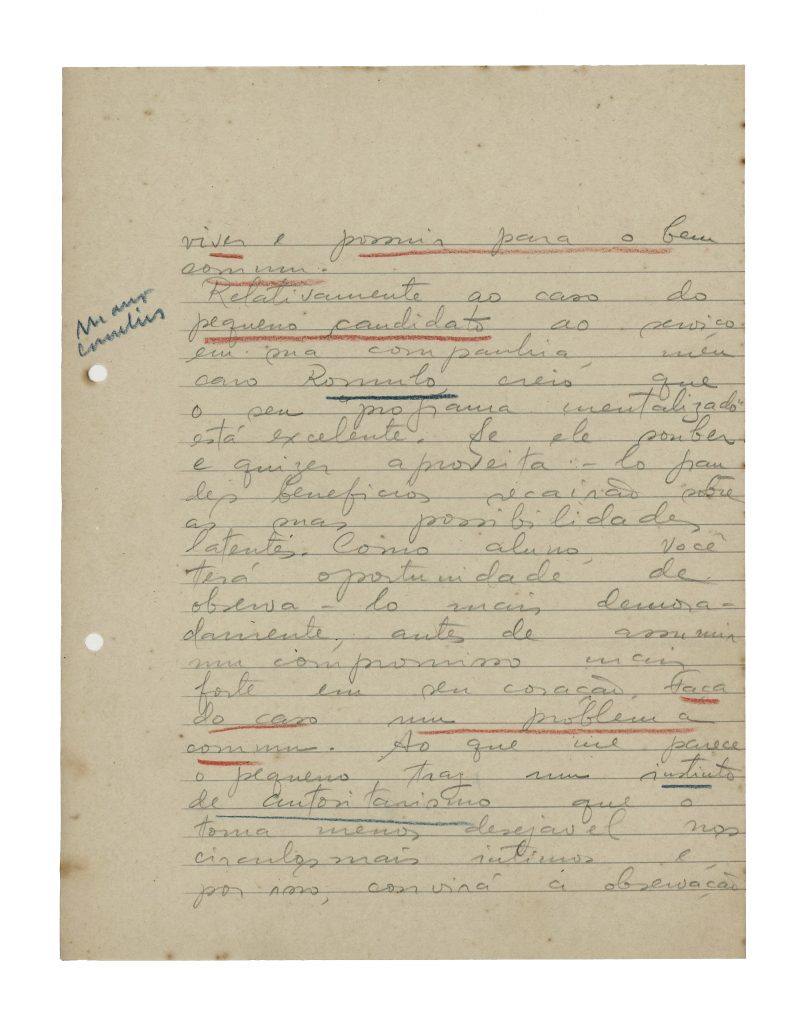 viver e possuir para o bem
commum.
Relativamente ao caso do
pequeno candidato ao serviço
em sua companhia, meu
caro Romulo, creio que
o seu "programa mentalizado"
está excelente. Se ele souber
e quizer aproveita-lo gran
des beneficios recairão sobre
as suas possibilidades
latentes. Como aluno, você
terá oportunidade de
observa-lo mais demora-
damente, antes de assumir
um compromisso mais
forte em seu coração. Faça
do caso um problema
commum. Ao que me parece
o pequeno traz um instinto
de autoritarismo que o
torna menos desejavel nos
circulos mais intimos e,
por isso, convirá a observação